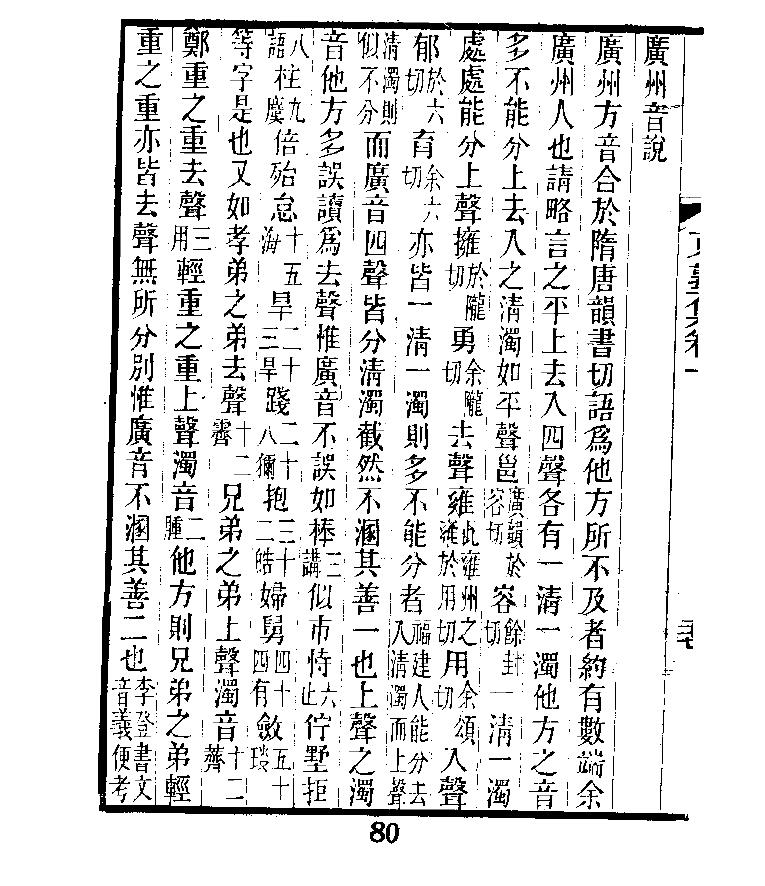 廣州音說
廣州方音合於隋唐韻書切語爲他方所不及者約有數端余
廣州人也請略言之平上去入四聲各有一清一濁他方之音
多不能分上去入之清濁如平聲邕廣韻於容切容餘封切一清一濁
處處能分上聲擁於隴切勇余隴切去聲雍此雍州之雍於用切用余頌切入聲
郁於六切育余六切亦皆一清一濁則多不能分者福建人能分去入清濁而上聲
清濁則似不分而廣音四聲皆分清濁截然不溷其善一也上聲之濁
音他方多誤讀爲去聲惟廣音不誤如棒三講似市恃六止佇墅拒
八語柱九麌倍殆怠十五海旱二十三旱踐二十八獮抱三十二皓婦舅四十四有斂五十琰
等字是也又如孝弟之弟去聲十二霽兄弟之弟上聲濁音十二薺
鄭重之重去聲三用輕重之重上聲濁音二腫他方則兄弟之弟輕
重之重亦皆去聲無所分別惟廣音不溷其善二也李登書文音義便考
卷一
80